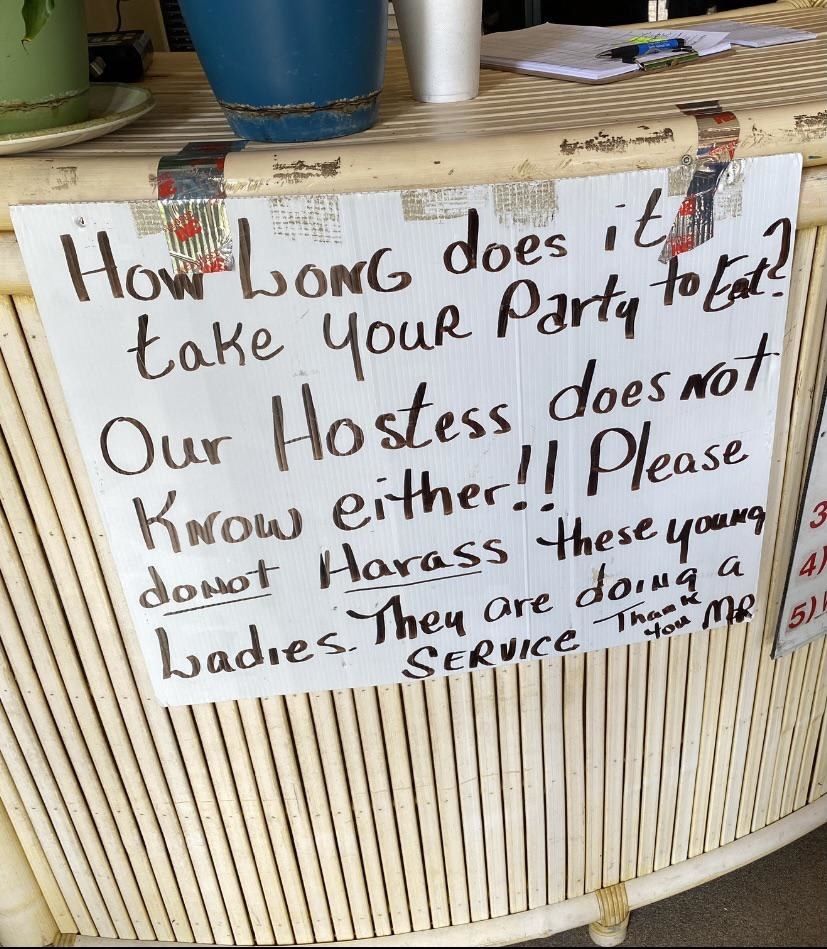 HOW LONG does it
take YOUR Party to Eat?
Our Hostess does NOT
KNOW either!! Please
do NOT Harass these young
Ladies. They are doing a
SERVICE Thank
You MGR
3
4)
5)